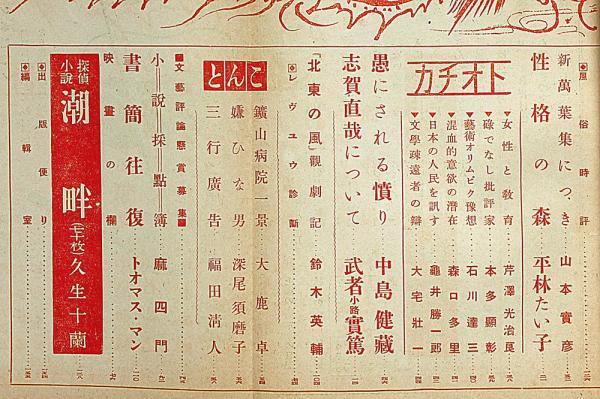 ◆風俗時評
新萬葉集につき 山本實彦
性格の森 平林たい子
オトチカ
▼女性と敎育 芹澤光治良
▼碌でなし批評家 本多顯彰
▼藝術オリムピク豫想 石川達三
▼混血的意欲の潜在 森口多里
▼日本の人民を訊す 龜井勝一郎
▼文學疎遠者の辯 大宅壯一
愚にされる憤り 中島健藏
志賀直哉について 武者小路實篤
「北東の風」觀劇記 鈴木英輔
◆レヴユウ診斷
こんと
鑛山病院一景 大鹿卓
嫌ひな男 深尾須磨子
三行廣告 福田淸人
■文藝評論懸賞募集■
小說採點簿 麻四門
書簡往復 トオマス・マン
映畫の欄
探偵小說 潮畔 久生十蘭
◆出版便り
◆編輯室